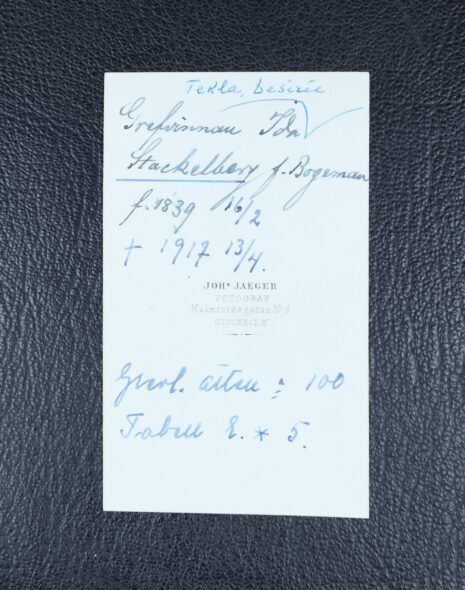 Tekla, Desirée
Grefvinnan Ida
Stackelberg f. Bogeman
f. 1839 16/2
† 1917 13/4.
JOHS JAEGER
FOTOGRAF
Malmtorgsgatan No 8
STOCKHOLM
Grevl. ätten : 100
Tabell 2. * 5.